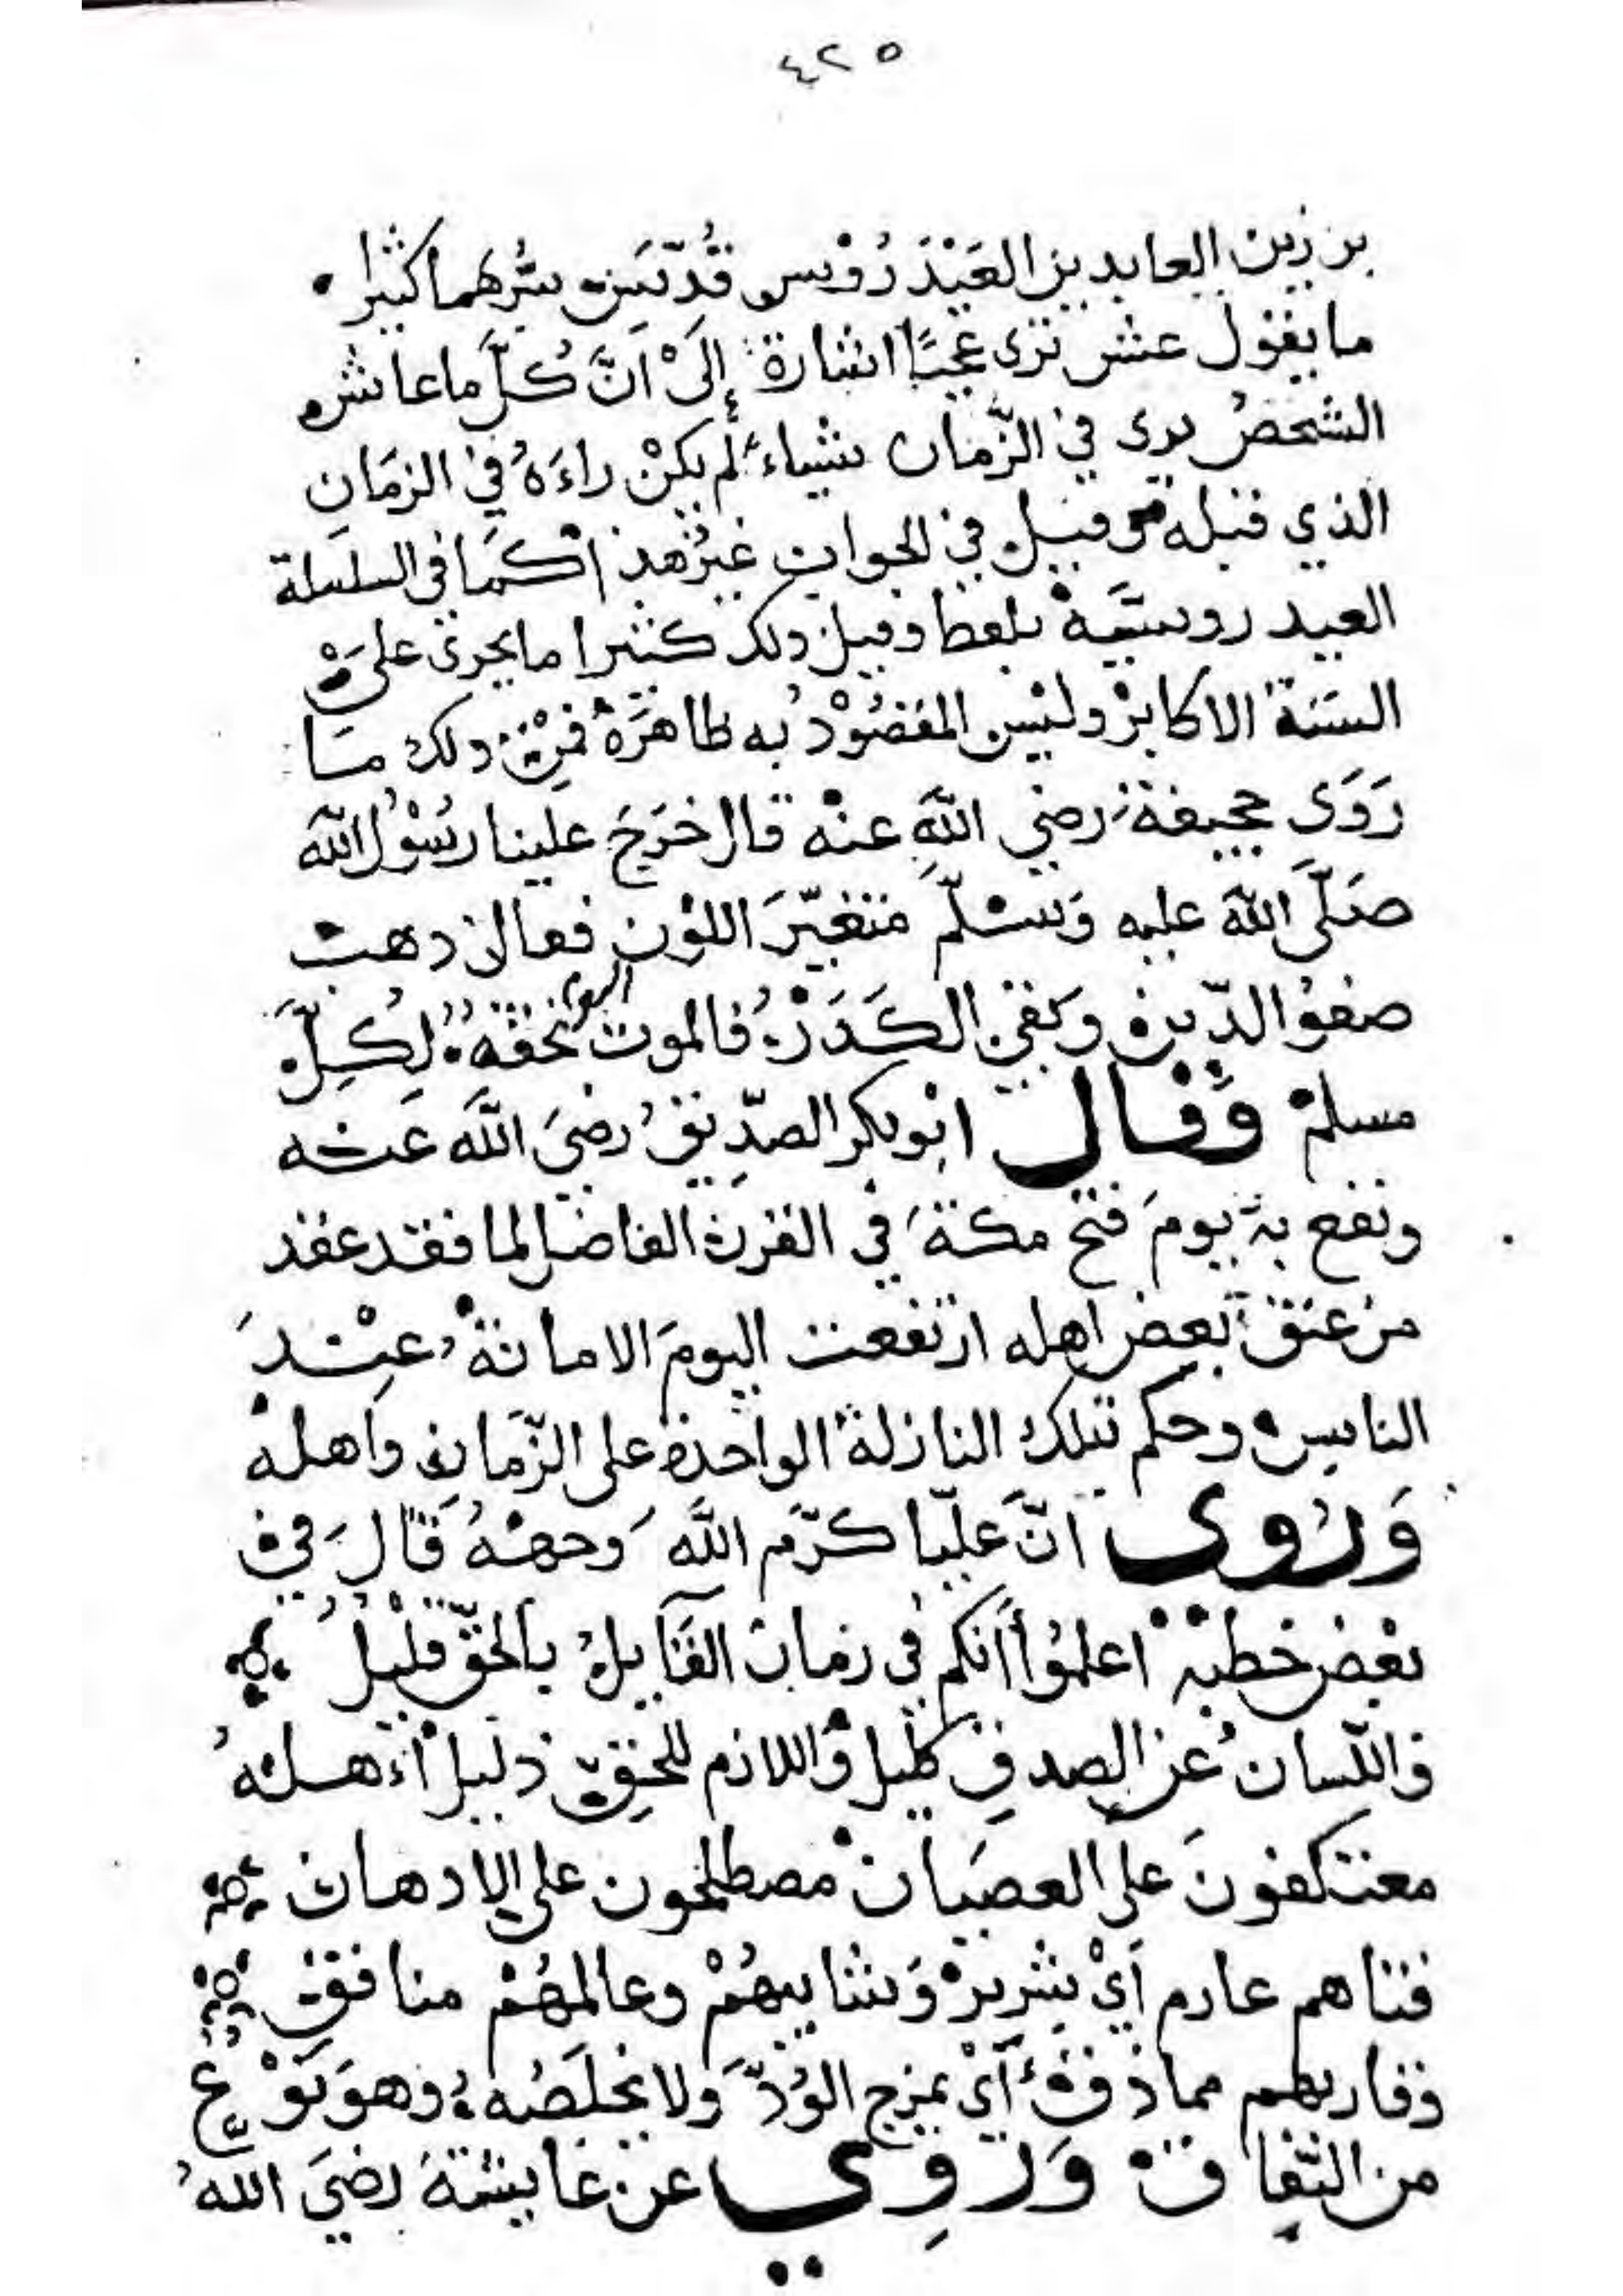 ٤٢٥
بن زين العابدين العَيْدَرُوْس قُدِّسَ سِرُّهما كثيرا
ما يقول عش ترى عجبًا اشارة إلَى أنَّ كُلَّ ما عاش
الشخصُ يرى في الزَّمان شياءً لم يكنْ راءَهُ في الزمَانِ
الذي قبله وقيل في الجواب غيرُ هذا كَمَا في السلسلة
العيدروسيَّة بلفظ وقيل ولك كثيرا ما يجري على
السنة الاكابرْ وليْس المقصُوْدُ به ظاهرَهُ فمِنْ ذلك مَا
رَوَى جحيفة رضي اللَّه عنْه قال خرَجَ علينا رسُوْل اللَّه
صَلَّى اللَّه عليه وَسَلَّم متغيّرَ اللوْن فقال ذهبَ
صفوُ الدّين وبَقيَ الكَدَرْ فالموت اليوم تحفة لِكلِّ
مسلمْ وَقال ابُو بكر الصدِّيْقُ رضيَ اللَّه عَنْه
ونفع به يومَ فتح مكةَ في القرن الفاضل لما فقد عقد
من عنق بعض اهله ارتفعت اليومَ الامانةُ عِنْدَ
الناس وحكم بتلك النازلة الواحدة على الزَّمانِ وأهله
وَرُوي انَّ عليّا كرّم اللَّه وجههُ قَالَ في
بعْض خطبه اعلمُوا أنكم في زمان القَايلُ بالحقّ قليْل
واللّسان عن الصدقِ كليل واللازم للحقِّ ذليل أهله
معتكفونَ على العصيَان مصطلحون على الادهان
فتاهم عارم أيْ شريرْ وَشايبهُمْ وعالمهُمْ منافق
وقاريهم مماذق أيْ يمزج الوُدَّ ولا يخلصُه وهوَ نوْع
من النّفاق وَرُوِي عن عايشة رضيَ اللهُ